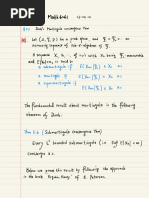 Martingales
§11 Doob's Martingale convergence Thm
Let (Ω, F, P) be a prob. space, and F₁ ⊂ F₂ ⊂ ... an
increasing sequence of sub-σ-algebras of F.
A sequence X₁, ... of r.v.'s with Xₙ being measurable
and E|Xₙ| < ∞ is called
a submartingale if E[Xₙ₊₁ | Fₙ] ≥ Xₙ a.s.
a martingale if E[Xₙ₊₁ | Fₙ] = Xₙ a.s.
a supermartingale if E[Xₙ₊₁ | Fₙ] ≤ Xₙ a.s.
The fundamental result about martingales is the following
theorem of Doob.
(Submartingale convergence Thm)
Every L¹ bounded submartingale (i.e. sup E|Xₙ| < ∞)
converges a.s.
Below we prove this result by following the approach
in the book "Ergodic Theory" of K. Petersen.